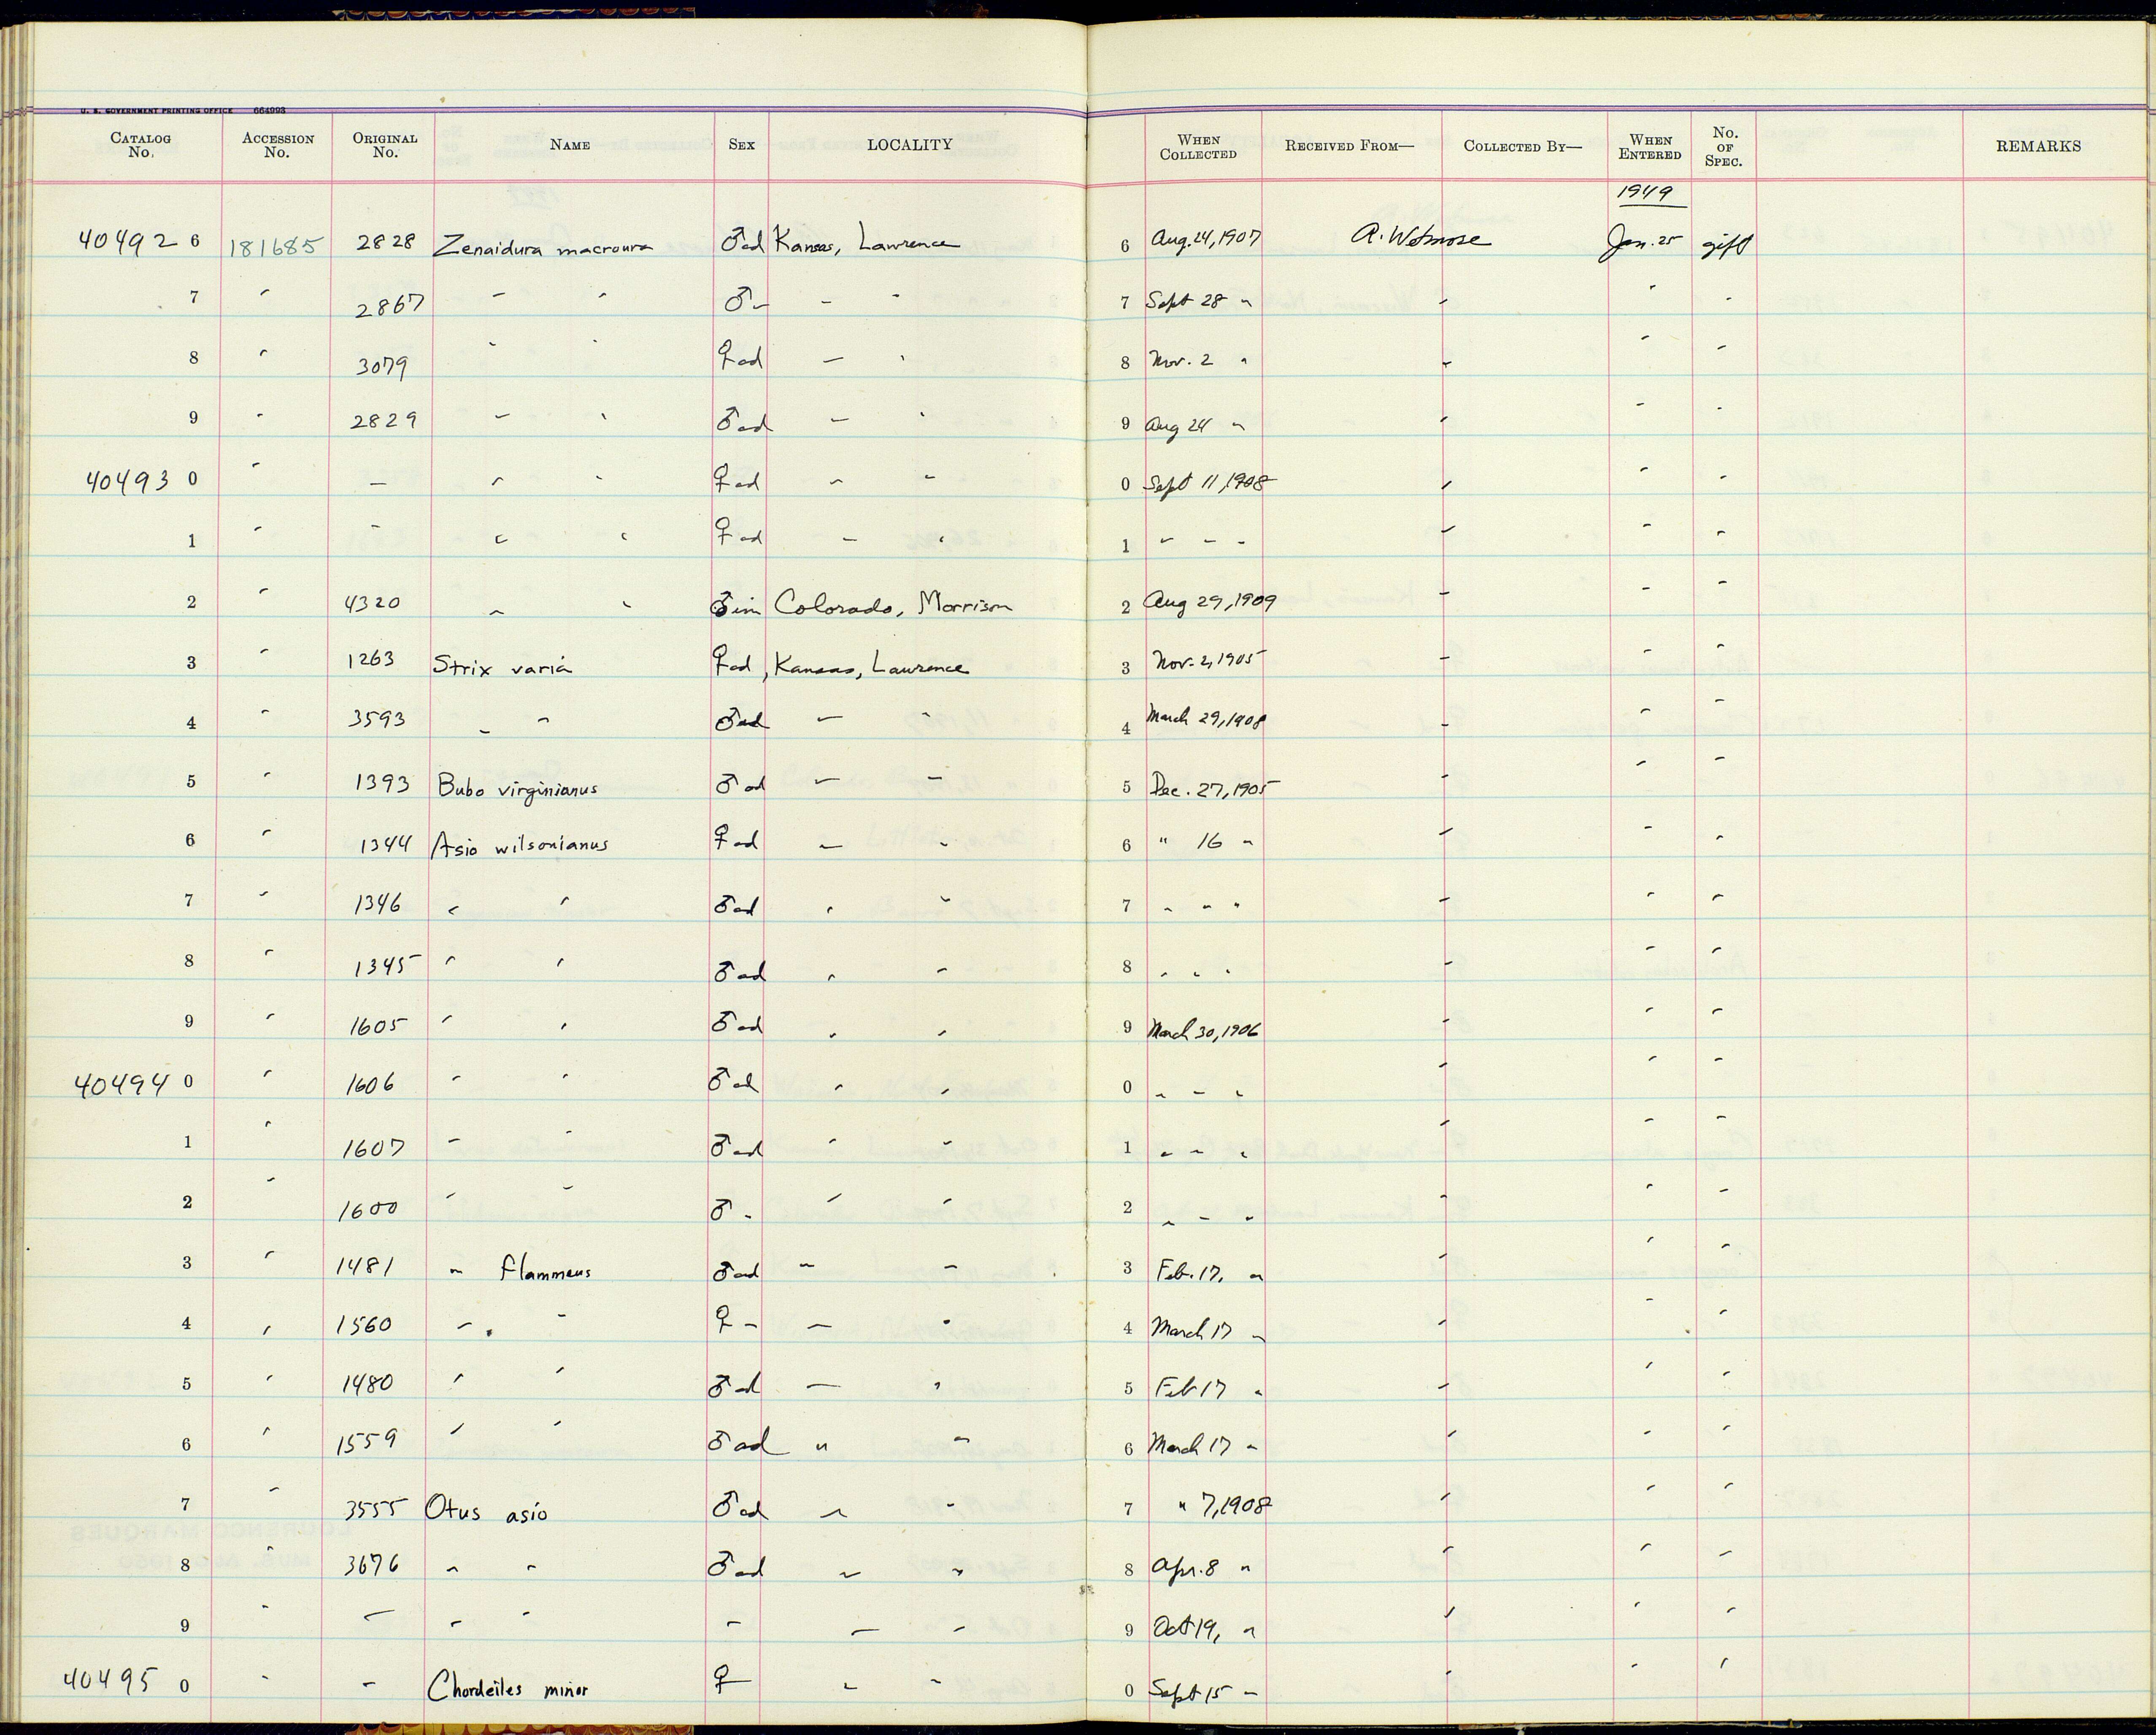 U. S. GOVERNMENT PRINTING OFFICE 664993
CATALOG No. ACCESSION No. ORIGINAL No. NAME SEX LOCALITY WHEN COLLECTED RECEIVED FROM— COLLECTED BY— WHEN ENTERED No. OF SPEC. REMARKS
1949
40492 6 181685 2828 Zenaidura macroura ♂ad Kansas, Lawrence 6 Aug. 24, 1907 A. Wetmore Jan. 25 gift
7 " 2867 " " ♂ " " " 7 Sept 28 " " " "
8 " 3079 " " ♀ad " " 8 Nov. 2 " " " "
9 " 2829 " " ♂ad " " 9 Aug 24 " " " "
40493 0 " — " " ♀ad " " 0 Sept 11, 1908 " " "
1 " — " " ♀ad " " 1 " " " " " "
2 " 4320 " " ♂im Colorado, Morrison 2 Aug 29, 1909 " " "
3 " 1263 Strix varia ♀ad, Kansas, Lawrence 3 Nov. 2, 1905 " " "
4 " 3593 " " ♂ad " " 4 March 29, 1908 " " "
5 " 1393 Bubo virginianus ♂ad " " 5 Dec. 27, 1905 " " "
6 " 1344 Asio wilsonianus ♀ad " " 6 " 16 " " " "
7 " 1346 " " ♂ad " " 7 " " " " " "
8 " 1345 " " ♂ad " " 8 " " " " " "
9 " 1605 " " ♂ad " " 9 March 30, 1906 " " "
40494 0 " 1606 " " ♂ad " " 0 " " " " " "
1 " 1607 " " ♂ad " " 1 " " " " " "
2 " 1600 " " ♂ " " " 2 " " " " " "
3 " 1481 " flammeus ♂ad " " 3 Feb. 17, " " " "
4 " 1560 " " ♀ " " " 4 March 17 " " " "
5 " 1480 " " ♂ad " " 5 Feb 17 " " " "
6 " 1559 " " ♂ad " " 6 March 17 " " " "
7 " 3555 Otus asio ♂ad " " 7 " 7, 1908 " " "
8 " 3676 " " ♂ad " " 8 Apr. 8 " " " "
9 " — " " — " " 9 Oct 19, " " " "
40495 0 " — Chordeiles minor ♀ " " 0 Sept 15 " " " "